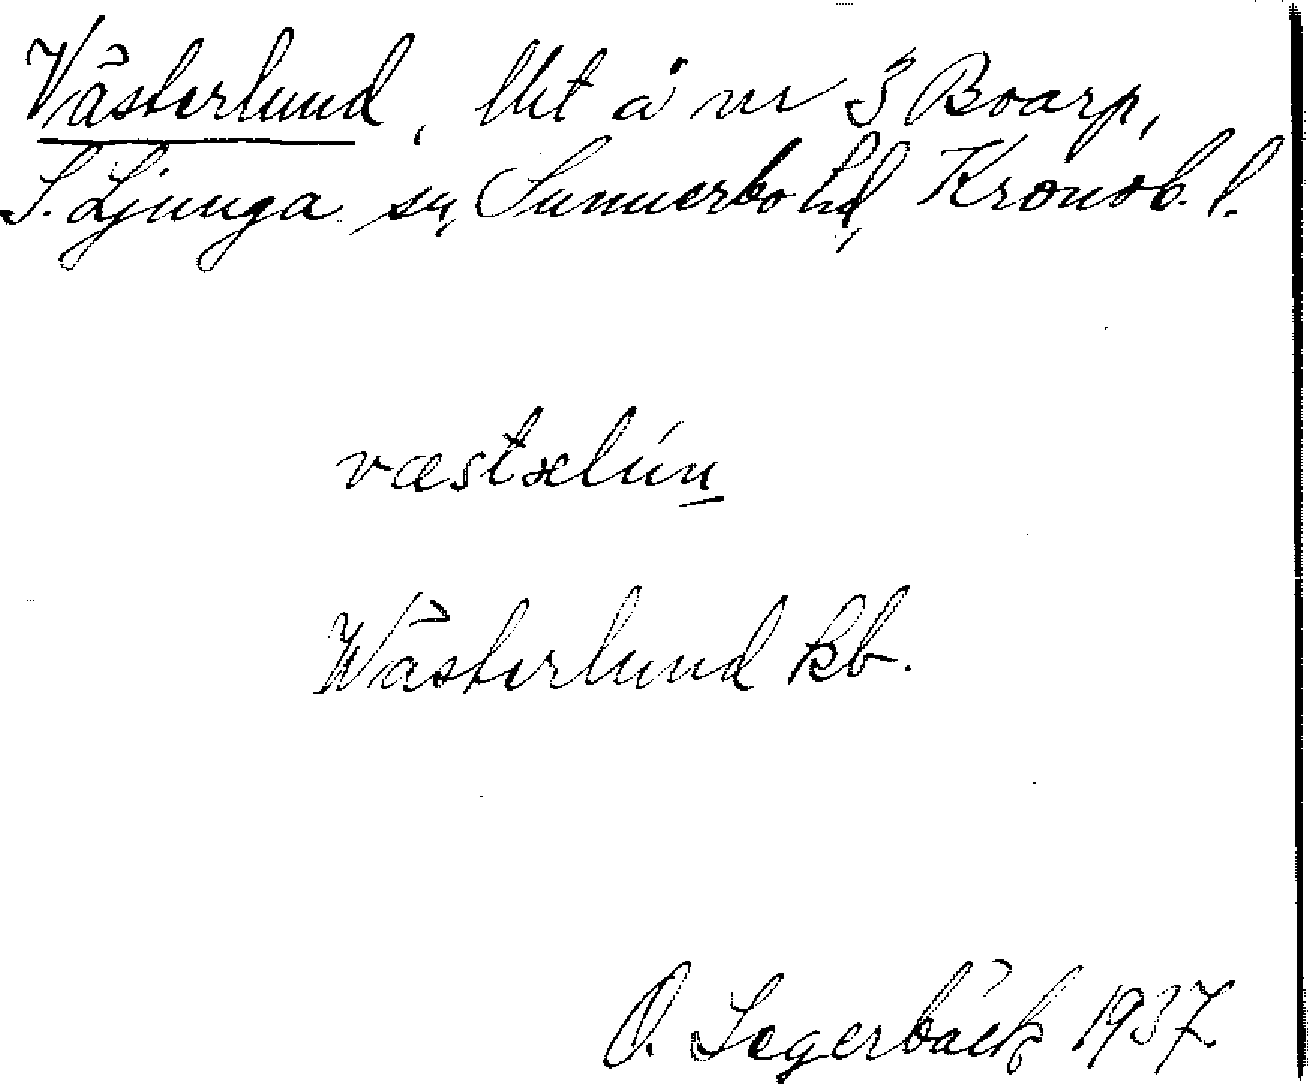 Västerlund, lht å nr 3 Boarp,
S. Ljunga sn, Sunnerbo hd, Kronob. l.
væstælún
Wästerlund kb.
O. Segerbäck 1937